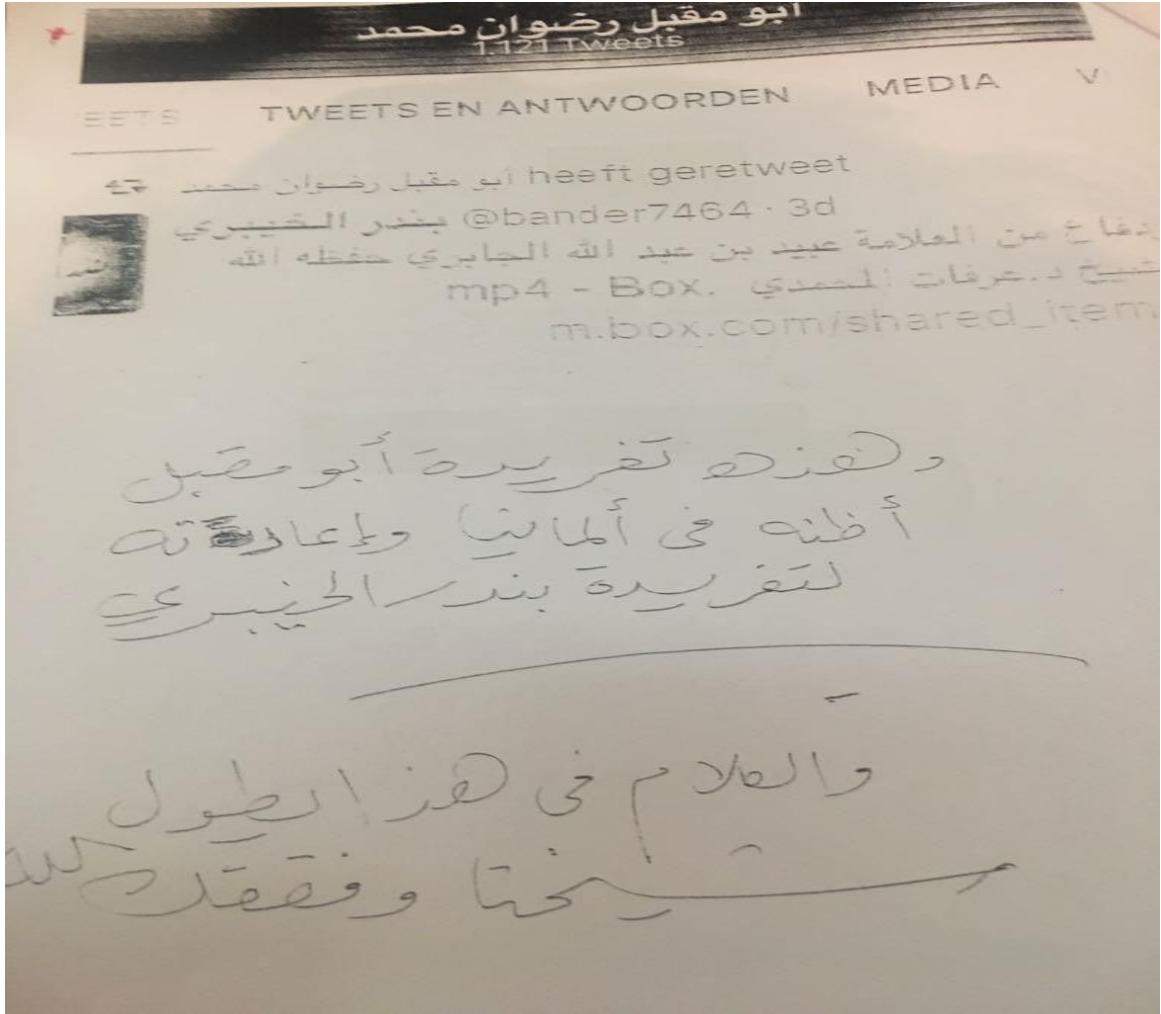 أبو مقبل رضوان محمد
1.121 Tweets
EETS TWEETS EN ANTWOORDEN MEDIA V
أبو مقبل رضوان محمد heeft geretweet
بندر الخيبري @bander7464 · 3d
دفاع عن العلامة عبيد بن عبد الله الجابري حفظه الله
د.عرفات المحمدي .mp4 - Box
m.box.com/shared_item
وهذه تغريدة أبو مقبل
أظنه في ألمانيا وإعادته
لتغريدة بندر الخيبري
والكلام في هذا يطول
شيخنا وفقك الله